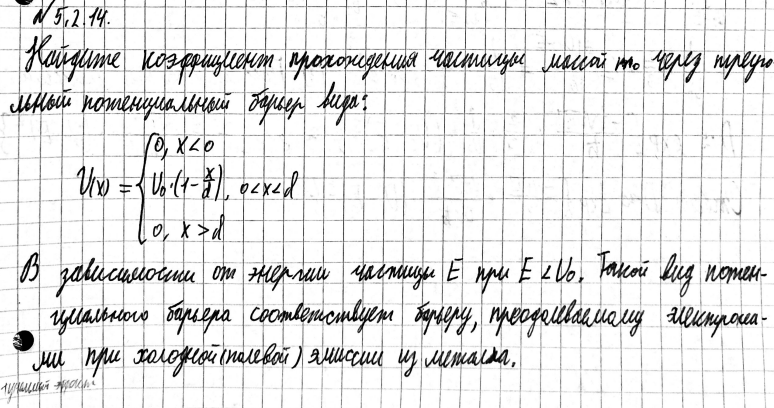 № 5.2.14.
Найдите коэффициент прохождения частицы массой m₀ через треуго
льный потенциальный барьер вида:
0, x<0
U(x) = { U₀·(1-x/d), 0<x<d
0, x>d
В зависимости от энергии частицы E при E<U₀. Такой вид потен-
циального барьера соответствует барьеру, преодолеваемому электрона-
ми при холодной (полевой) эмиссии из металла.